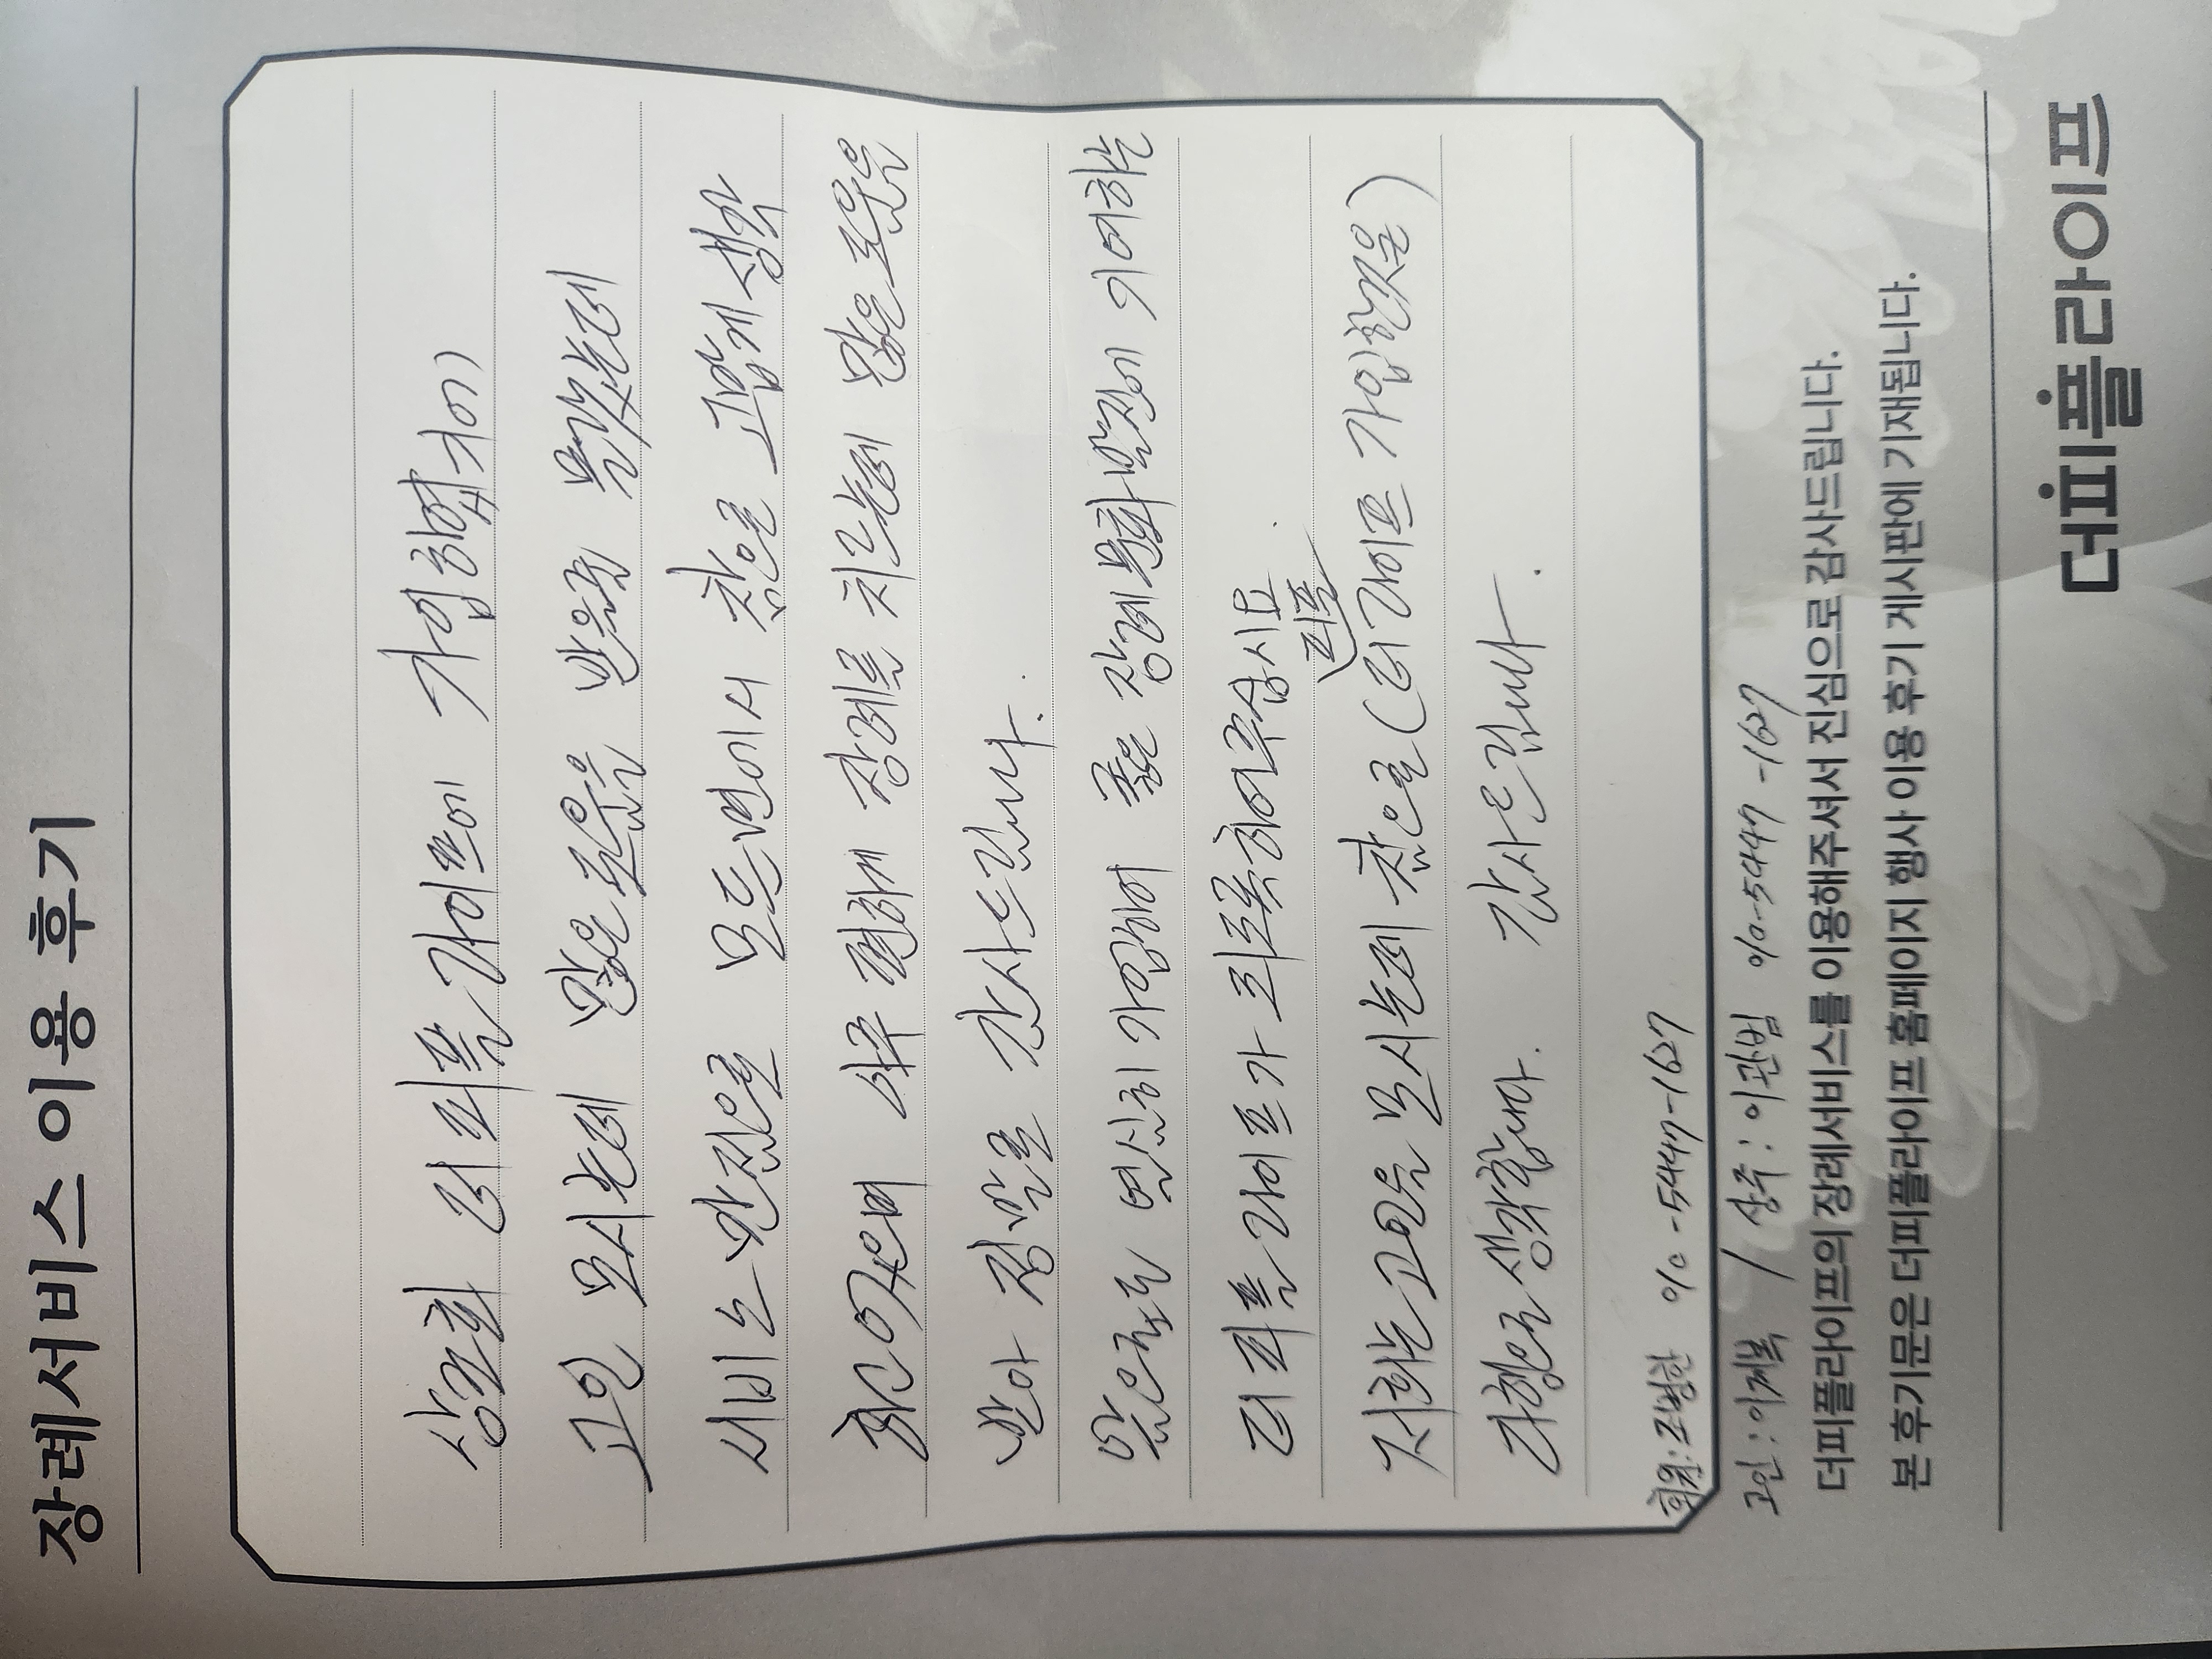 장례서비스 이용 후기
상조회 더피플라이프에 가입하였거
고인 모시는데 많은 도움을 받은줄 몰랐는데
서비스 만전으로 모든면에서 참으로 고맙게 생각
하였으며 아주 편하게 장례를 치르는데 많은 도움을
받아 정말로 감사드립니다.
앞으로도 열심히 가입하여 좋은 장례문화 발전에 기여하는
더피플라이프가 되도록하여주십시요.
저희는 고인을 모시는데 참으로 (더피플라이프 가입했음)
다행으로 생각합니다. 감사드립니다.
회원: 010-5447-1627
고인: / 상주: 이관범 010-5447-1627
더피플라이프의 장례서비스를 이용해주셔서 진심으로 감사드립니다.
본 후기문은 더피플라이프 홈페이지 행사 이용 후기 게시판에 기재됩니다.
더피플라이프